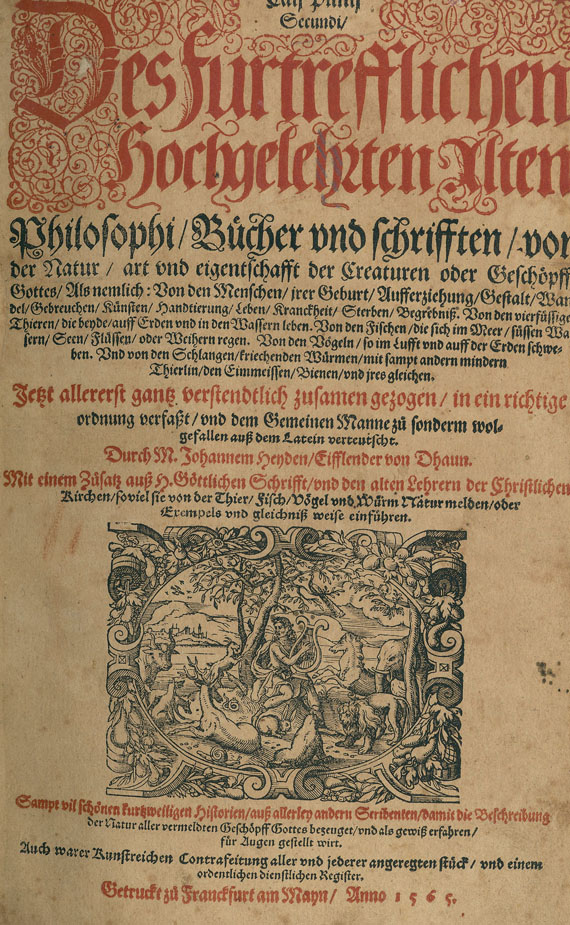 Caij Plinij
Secundi/
Des furtrefflichen
Hochgelehrten Alten
Philosophi/ Bücher vnd schrifften/ von
der Natur/ art vnd eigentschafft der Creaturen oder Geschöpff
Gottes/ Als nemlich: Von den Menschen/ jrer Geburt/ Aufferziehung/ Gestalt/ Wan
del/ Gebreuchen/ Künsten/ Handtierung/ Leben/ Kranckheit/ Sterben/ Begrebniß. Von den vierfüssige
Thieren/ die beyde/ auff Erden vnd in den Wassern leben. Von den Fischen/ die sich im Meer/ süssen Wa
sern/ Seen/ Flüssen/ oder Weihern regen. Von den Vögeln/ so im Lufft vnd auff der Erden schwe-
ben. Vnd von den Schlangen/ kriechenden Würmen/ mit sampt andern mindern
Thierlin/ den Eimmeissen/ Bienen/ vnd jres gleichen.
Jetzt allererst gantz verstendtlich zusamen gezogen/ in ein richtige
ordnung verfaßt/ vnd dem Gemeinen Manne zů sonderm wol-
gefallen auß dem Latein verteutscht.
Durch M. Johannem Heyden/ Eifflender von Dhaun.
Mit einem Zůsatz auß H. Göttlichen Schrifft/ vnd den alten Lehrern der Christlichen
Kirchen/ so viel sie von der Thier/ Fisch/ Vögel vnd Würm Natur melden/ oder
Exempels vnd gleichniß weise einführen.
Sampt vil schönen kurtzweiligen Historien/ auß allerley andern Scribenten/ damit die Beschreibung
der Natur aller vermeldten Geschöpff Gottes bezeuget/ vnd als gewiß erfahren/
für Augen gestellt wirt.
Auch warer Kunstreichen Contrafeitung aller vnd jederer angeregten stück/ vnd einem
ordentlichen dienstlichen Register.
Getruckt zů Franckfurt am Mayn/ Anno 1565.